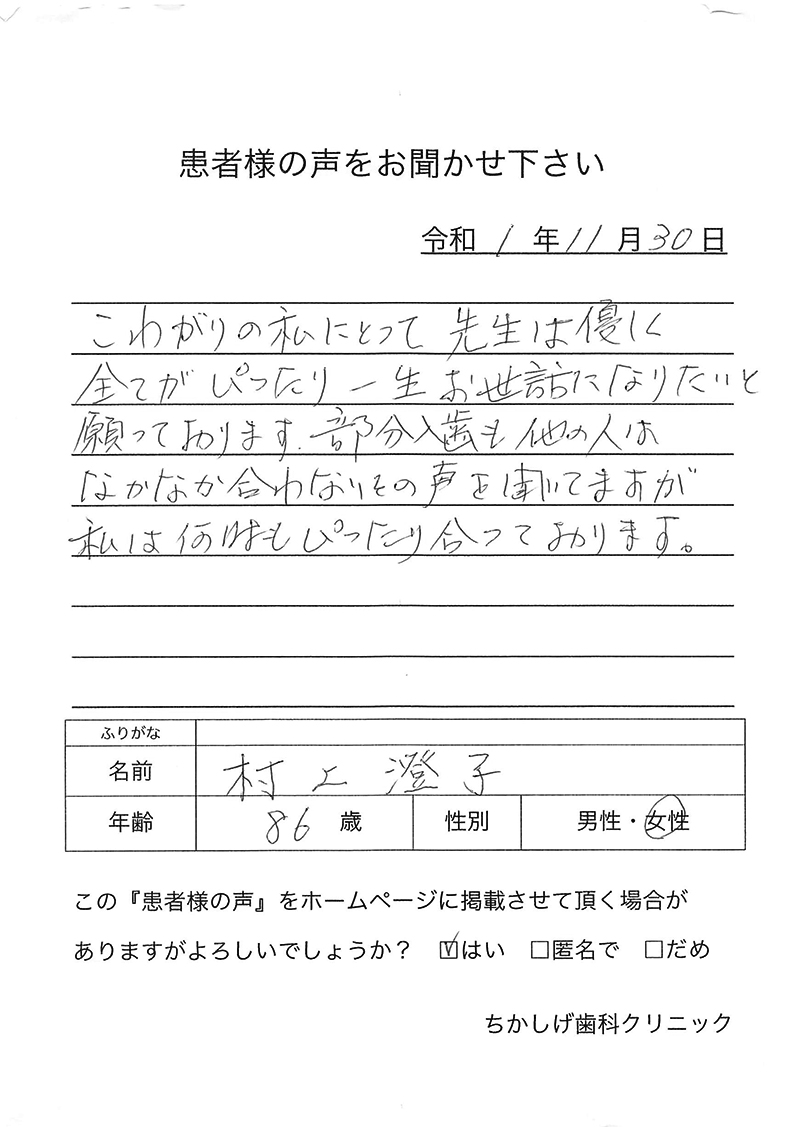 患者様の声をお聞かせ下さい
令和 1 年 11 月 30 日
こわがりの私にとって 先生は優しく
全てがぴったり一生お世話になりたいと
願っております。部分入歯も他の人は
なかなか合わないその声を聞いてますが
私は何時もぴったり合っております。
ふりがな
名前 村上 澄子
年齢 86 歳 性別 男性・女性
この『患者様の声』をホームページに掲載させて頂く場合が
ありますがよろしいでしょうか? ☑はい □匿名で □だめ
ちかしげ歯科クリニック